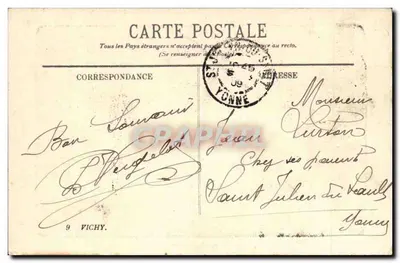 CARTE POSTALE
Tous les Pays étrangers n'acceptent pas la Correspondance au recto.
(Se renseigner à la Poste)
CORRESPONDANCE
ADRESSE
YONNE
09
Bon Souvenir
Monsieur
Jean
Chez ses parents
Saint Julien du Sault
Yonne
9 VICHY.